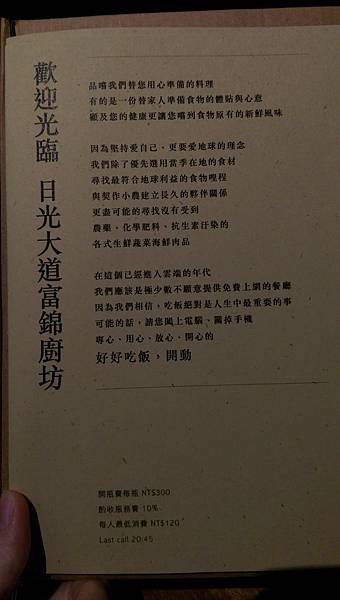 歡迎光臨 日光大道富錦廚坊
品嚐我們替您用心準備的料理
有的是一份替家人準備食物的體貼與心意
顧及您的健康更讓您嚐到食物原有的新鮮風味
因為堅持愛自己，更要愛地球的理念
我們除了優先選用當季在地的食材
尋找最符合地球利益的食物哩程
與契作小農建立長久的夥伴關係
更盡可能的尋找沒有受到
農藥、化學肥料、抗生素汙染的
各式生鮮蔬菜海鮮肉品
在這個已經進入雲端的年代
我們應該是極少數不願意提供免費上網的餐廳
因為我們相信，吃飯絕對是人生中最重要的事
可能的話，請您闔上電腦、關掉手機
專心、用心、放心、開心的
好好吃飯，開動
開瓶費每瓶 NT$300
酌收服務費 10%
每人最低消費 NT$120
Last call 20:45